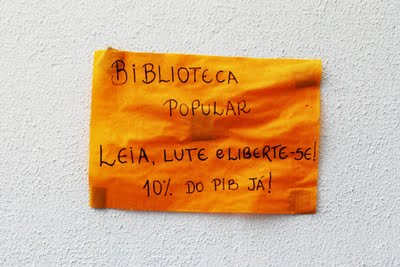 BiBLIOTECA
POPULAR
LEIA, LUTE e LIBERTE-SE!
10% DO PIB JÁ!